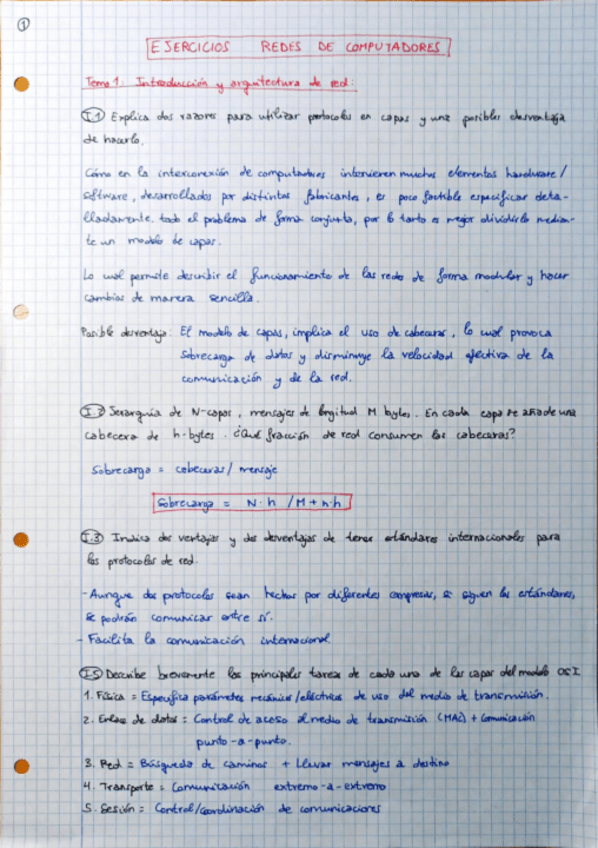 1
EJERCICIOS REDES DE COMPUTADORES
Tema 1: Introducción y arquitectura de red:
I.1 Explica dos razones para utilizar protocolos en capas y una posible desventaja
de hacerlo.
Cómo en la interconexión de computadoras intervienen muchos elementos hardware/
software, desarrollados por distintos fabricantes, es poco factible especificar deta-
lladamente todo el problema de forma conjunta, por lo tanto es mejor dividirlo median-
te un modelo de capas.
Lo cual permite describir el funcionamiento de las redes de forma modular y hacer
cambios de manera sencilla.
Posible desventaja: El modelo de capas, implica el uso de cabeceras, lo cual provoca
sobrecarga de datos y disminuye la velocidad efectiva de la
comunicación y de la red.
I.2 Jerarquía de N-capas, mensajes de longitud M bytes. En cada capa se añade una
cabecera de h-bytes. ¿Qué fracción de red consumen las cabeceras?
Sobrecarga = cabeceras / mensaje
Sobrecarga = N·h / M+n·h
I.3 Indica dos ventajas y dos desventajas de tener estándares internacionales para
los protocolos de red.
- Aunque dos protocolos sean hechos por diferentes empresas, si siguen los estándares,
se podrán comunicar entre sí.
- Facilita la comunicación internacional
I.5 Describe brevemente las principales tareas de cada una de las capas del modelo OSI
1. Física = Especifica parámetros mecánicos/eléctricos de uso del medio de transmisión.
2. Enlace de datos = Control de acceso al medio de transmisión (MAC) + Comunicación
punto-a-punto.
3. Red = Búsqueda de caminos + Llevar mensajes a destino
4. Transporte = Comunicación extremo-a-extremo
5. Sesión = Control/coordinación de comunicaciones